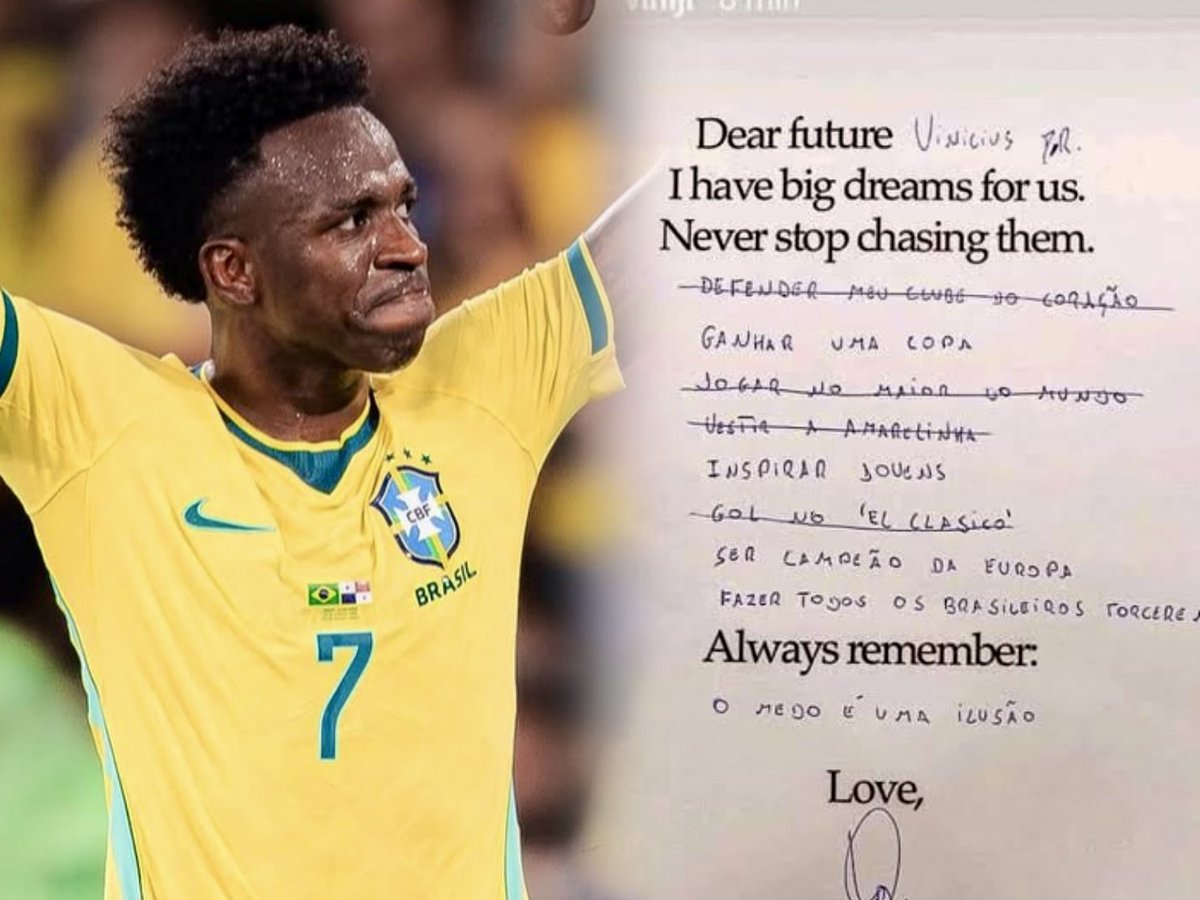 CBF
BRASIL
7
Dear future Vinicius Jr.
I have big dreams for us.
Never stop chasing them.
DEFENDER MEU CLUBE DO CORAÇÃO
GANHAR UMA COPA
JOGAR NO MAIOR DO MUNDO
VESTIR A AMARELINHA
INSPIRAR JOVENS
GOL NO 'EL CLASICO'
SER CAMPEÃO DA EUROPA
FAZER TODOS OS BRASILEIROS
Always remember:
O MEDO É UMA ILUSÃO
Love,